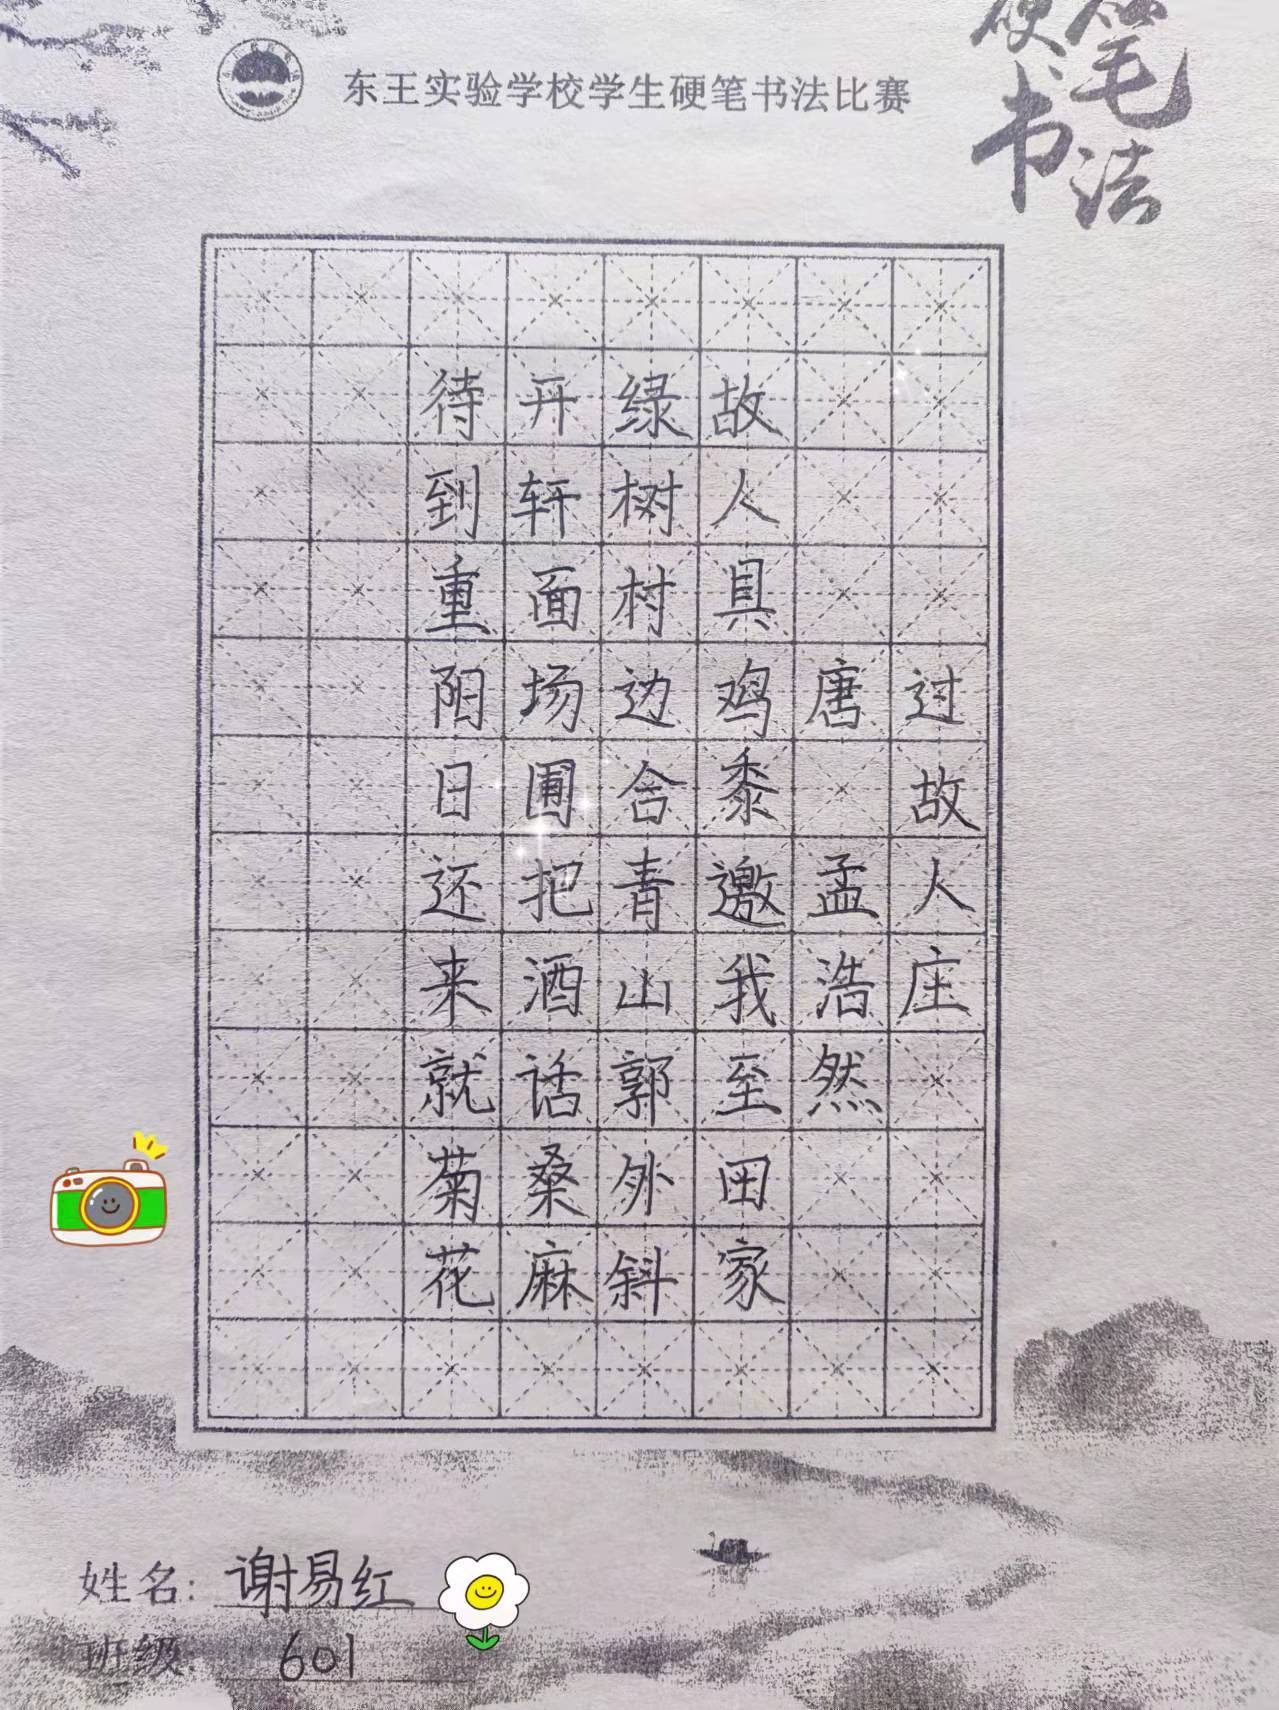 东王实验学校学生硬笔书法比赛
硬笔书法
过故人庄
唐 孟浩然
故人具鸡黍邀我至田家
绿树村边合青山郭外斜
开轩面场圃把酒话桑麻
待到重阳日还来就菊花
姓名：谢易红
班级：601